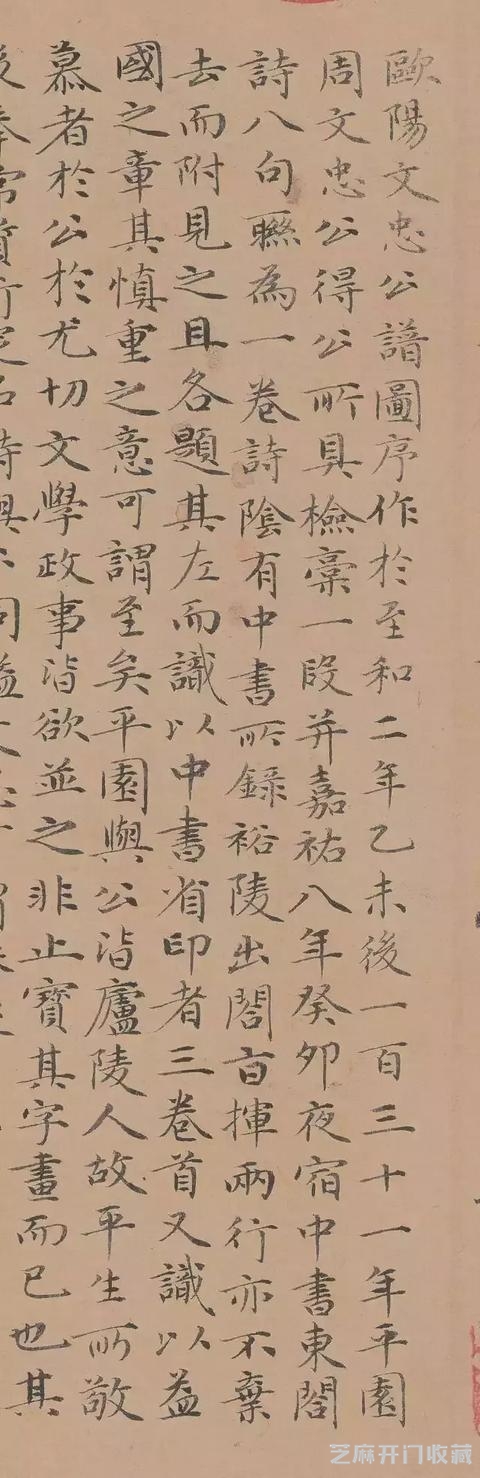 歐陽文忠公譜圖序作於至和二年乙未後一百三十一年平園
周文忠公得公所具檢稾一段并嘉祐八年癸卯夜宿中書東閤
詩八句聯為一卷詩陰有中書所錄裕陵出閤百揮兩行亦不棄
去而附見之且各題其左而識以中書省印者三卷首又識以益
國之章其慎重之意可謂至矣平園與公皆廬陵人故平生所敬
慕者於公於尤切文學政事皆欲並之非止寶其字畫而已也其
芝麻开门收藏